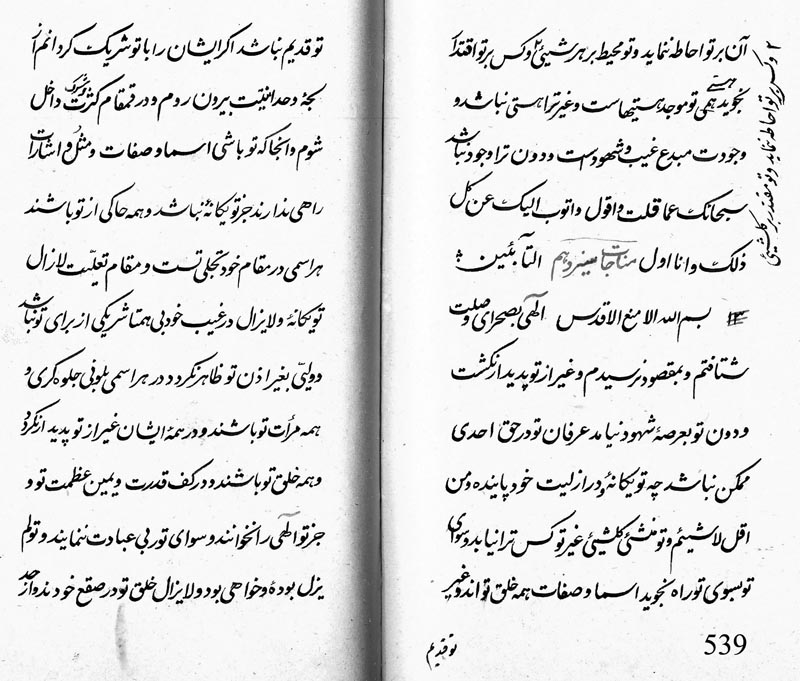 آن بر تو احاطه ننماید و تو محیط بر هر شیئی ۲ و کس بر تو اقتدا
نجوید همی هستی تو موجد هستیهاست و غیر ترا هستی نباشد و
وجودت مبدع غیب و شهود ست و دون ترا وجود نباشد
سبحانک عما قلت و اقول و اتوب الیک عن کل
ذلک و انا اول التائبین
مناجات سیزدهم
بسم الله الامنع الاقدس الهی بصحرای وصلت
شتافتم و بمقصود نرسیدم و غیر از تو پدیدار نگشت
و دون تو بعرصهٔ شهود نیامد عرفان تو در حق احدی
ممکن نباشد چه تو یگانهٔ و در ازلیت خود پاینده و من
اقل لاشیئم و تو منشئ کلشیئی غیر تو کس ترا نیابد و سوای
تو بسوی تو راه نجوید اسما و صفات همه خلق تو اند و غیر
تو قدیم
539
۲ و کس بر تو احاطه ننماید و تو مقتدر بر کلشیئی
تو قدیم نباشد اگر ایشان را با تو شریک گردانم از
لجهٔ وحدانیتت بیرون روم و در قمقام کثرت و شرک داخل
شوم و آنجا که تو باشی اسما و صفات و مثل و اشارات
راهی ندارند جز تو یگانهٔ نباشد و همه حاکی از تو باشند
هر اسمی در مقام خود تجلی تست و مقام تعلیت لازال
تو یگانهٔ و لایزال در غیب خود بی همتا شریکی از برای تو نباشد
و ولیی بغیر اذن تو ظاهر نگردد در هر اسمی بلونی جلوه گری و
همه مرآت تو باشند و در همهٔ ایشان غیر از تو پدیدار نگردد
و همه خلق تو باشند و در کف قدرت و یمین عظمت تو و
جز تو الهی را نخوانند و سوای تو ربی عبادت ننمایند و تو لم
یزل بودهٔ و خواهی بود و لایزال خلق تو در صقع خودند و از حد